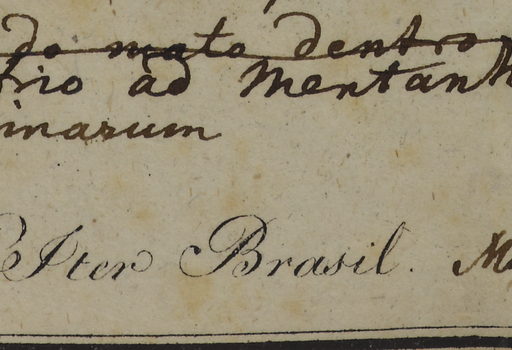 do mato dentro
rio ad Mentanh
inarum
Iter Brasil. M